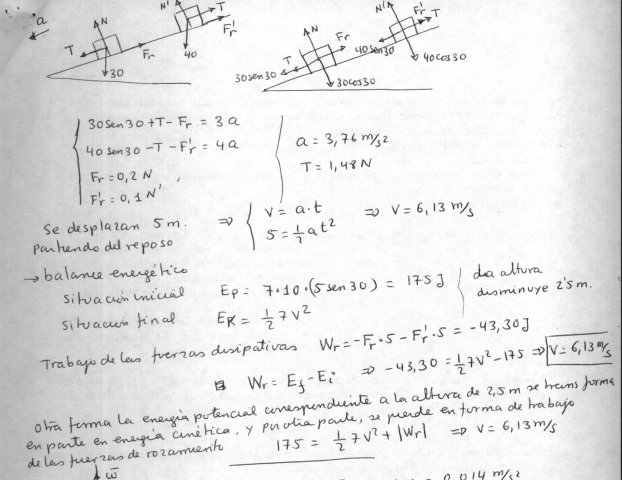 a N' T
N F'r
T Fr 40
30
N' F'r T
N Fr
T 40sen30
30sen30 40cos30
30cos30
30sen30 + T - Fr = 3a
40sen30 - T - F'r = 4a
Fr = 0,2 N
F'r = 0,1 N'
a = 3,76 m/s2
T = 1,48 N
Se desplazan 5 m. ⇒ V = a·t ⇒ V = 6,13 m/s
partiendo del reposo 5 = ½ a t²
→ balance energético
situación inicial Ep = 7·10·(5 sen30) = 175 J la altura
disminuye 2'5 m.
situación final EK = ½ 7 V²
Trabajo de las fuerzas disipativas Wr = -Fr·5 - F'r·5 = -43,30 J
Wr = Ef - Ei ⇒ -43,30 = ½ 7V² - 175 ⇒ V = 6,13 m/s
otra forma La energía potencial correspondiente a la altura de 2,5 m se transforma
en parte en energía cinética, y por otra parte, se pierde en forma de trabajo
de las fuerzas de rozamiento 175 = ½ 7V² + |Wr| ⇒ V = 6,13 m/s
ω 0,014 m/s2